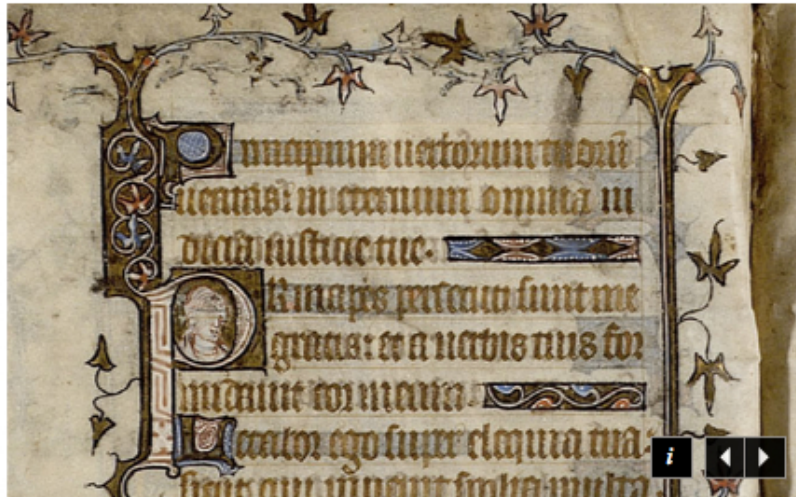 Principium uerborum tuorū
ueritas: in eternum omnia iu
dicia iusticie tue.
PRincipes persecuti sunt me
gratis: et a uerbis tuis for
midauit cor meum.
Letabor ego super eloquia tua:
sicut qui inuenit spolia multa
i